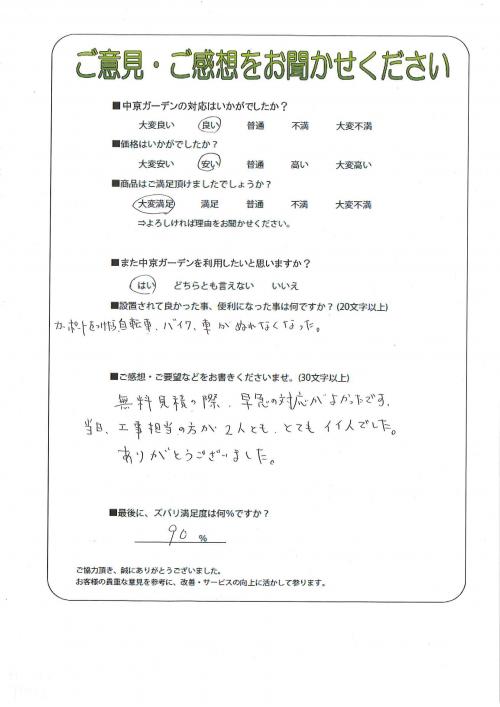 ご意見・ご感想をお聞かせください
■中京ガーデンの対応はいかがでしたか？
大変良い 良い 普通 不満 大変不満
■価格はいかがでしたか？
大変安い 安い 普通 高い 大変高い
■商品はご満足頂けましたでしょうか？
大変満足 満足 普通 不満 大変不満
⇒よろしければ理由をお聞かせください。
■また中京ガーデンを利用したいと思いますか？
はい どちらとも言えない いいえ
■設置されて良かった事、便利になった事は何ですか？(20文字以上)
カーポートをつけたら自転車、バイク、車がぬれなくなった。
■ご感想・ご要望などをお書きくださいませ。(30文字以上)
無料見積の際、早急の対応がよかったです。
当日、工事担当の方が2人とも、とてもイイ人でした。
ありがとうございました。
■最後に、ズバリ満足度は何％ですか？
90 ％
ご協力頂き、誠にありがとうございました。
お客様の貴重な意見を参考に、改善・サービスの向上に活かして参ります。